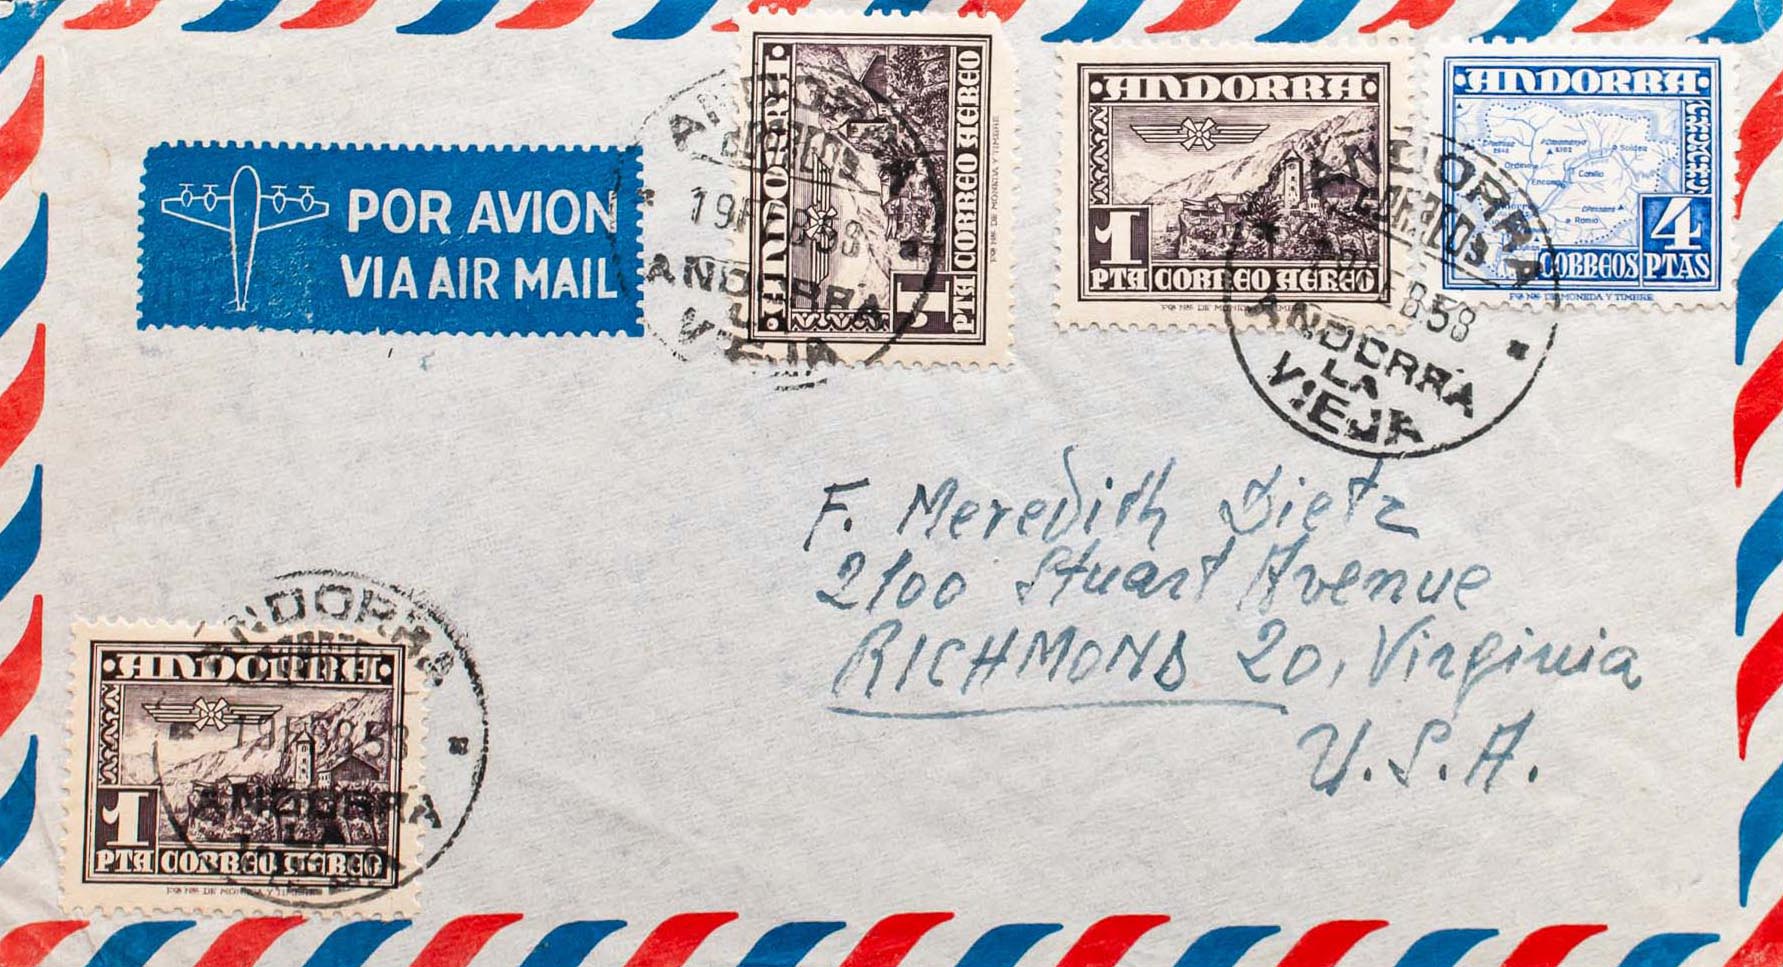 POR AVION
VIA AIR MAIL
·ANDORRA·
1
PTA CORREO AEREO
Fca Nal DE MONEDA Y TIMBRE
ANDORRA
CORREOS
19 FEB 58
ANDORRA
LA
VIEJA
·ANDORRA·
1
PTA CORREO AEREO
Fca Nal DE MONEDA Y TIMBRE
·ANDORRA·
Soldeu
Ordino
Canillo
Encamp
4
CORREOS PTAS
Fca Nal DE MONEDA Y TIMBRE
ANDORRA
CORREOS
FEB 58
ANDORRA
LA
VIEJA
F. Meredith Dietz
2100 Stuart Avenue
RICHMOND 20, Virginia
U.S.A.
·ANDORRA·
1
PTA CORREO AEREO
Fca Nal DE MONEDA Y TIMBRE
ANDORRA
CORREOS
19 FEB 58
ANDORRA
LA